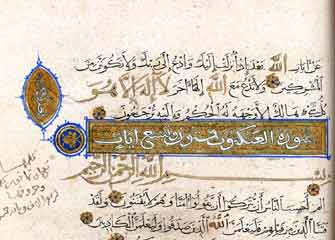 عن آيات الله بعد إذ أنزلت إليك وادع إلى ربك ولا تكونن من
المشركين ولا تدع مع الله إلها آخر لا إله إلا هو
كل شيء هالك إلا وجهه له الحكم وإليه ترجعون
سورة العنكبوت ستون وتسع آيات
بسم الله الرحمن الرحيم
الم أحسب الناس أن يتركوا أن يقولوا آمنا وهم لا يفتنون ولقد
فتنا الذين من قبلهم فليعلمن الله الذين صدقوا وليعلمن الكاذبين